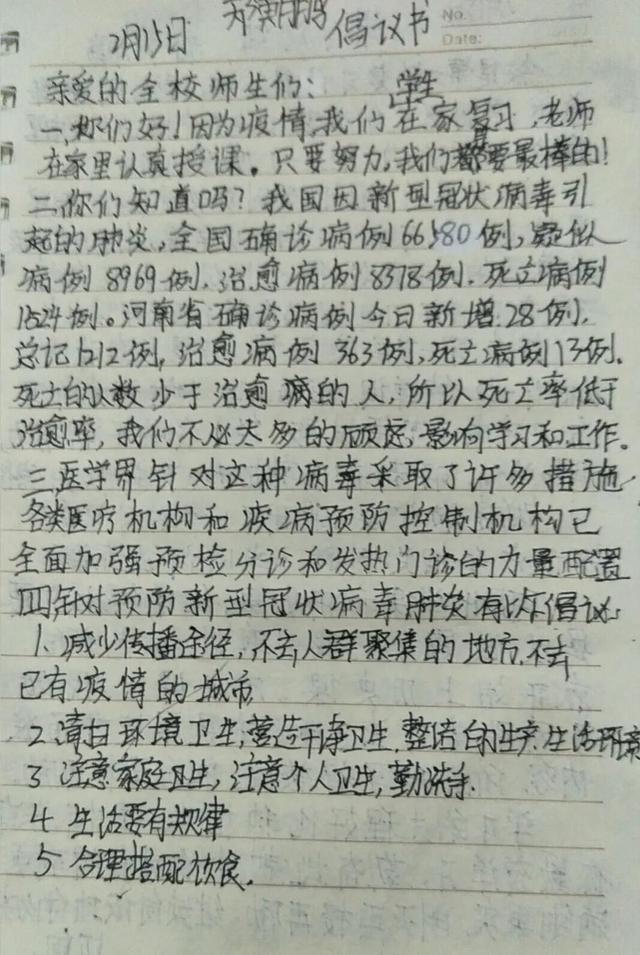 No.
Date:
2月15日 倡议书
亲爱的全校师生们:
一、你们好!因为疫情,我们学生在家复习,老师
在家里认真授课。只要努力,我们都要最棒的!
二、你们知道吗?我国因新型冠状病毒引
起的肺炎,全国确诊病例66580例,疑似
病例8969例,治愈病例8378例,死亡病例
1524例。河南省确诊病例今日新增28例,
总记1212例,治愈病例363例,死亡病例13例.
死亡的人数少于治愈病的人,所以死亡率低于
治愈率,我们不必太多的顾虑,影响学习和工作。
三、医学界针对这种病毒采取了许多措施
各类医疗机构和疾病预防控制机构已
全面加强预检分诊和发热门诊的力量配置
四针对预防新型冠状病毒肺炎有以下倡议:
1、减少传播途径,不去人群聚集的地方,不去
已有疫情的城市
2、清扫环境卫生,营造干净卫生,整洁的生产、生活环境
3 注意家庭卫生,注意个人卫生,勤洗手.
4 生活要有规律
5 合理搭配饮食.